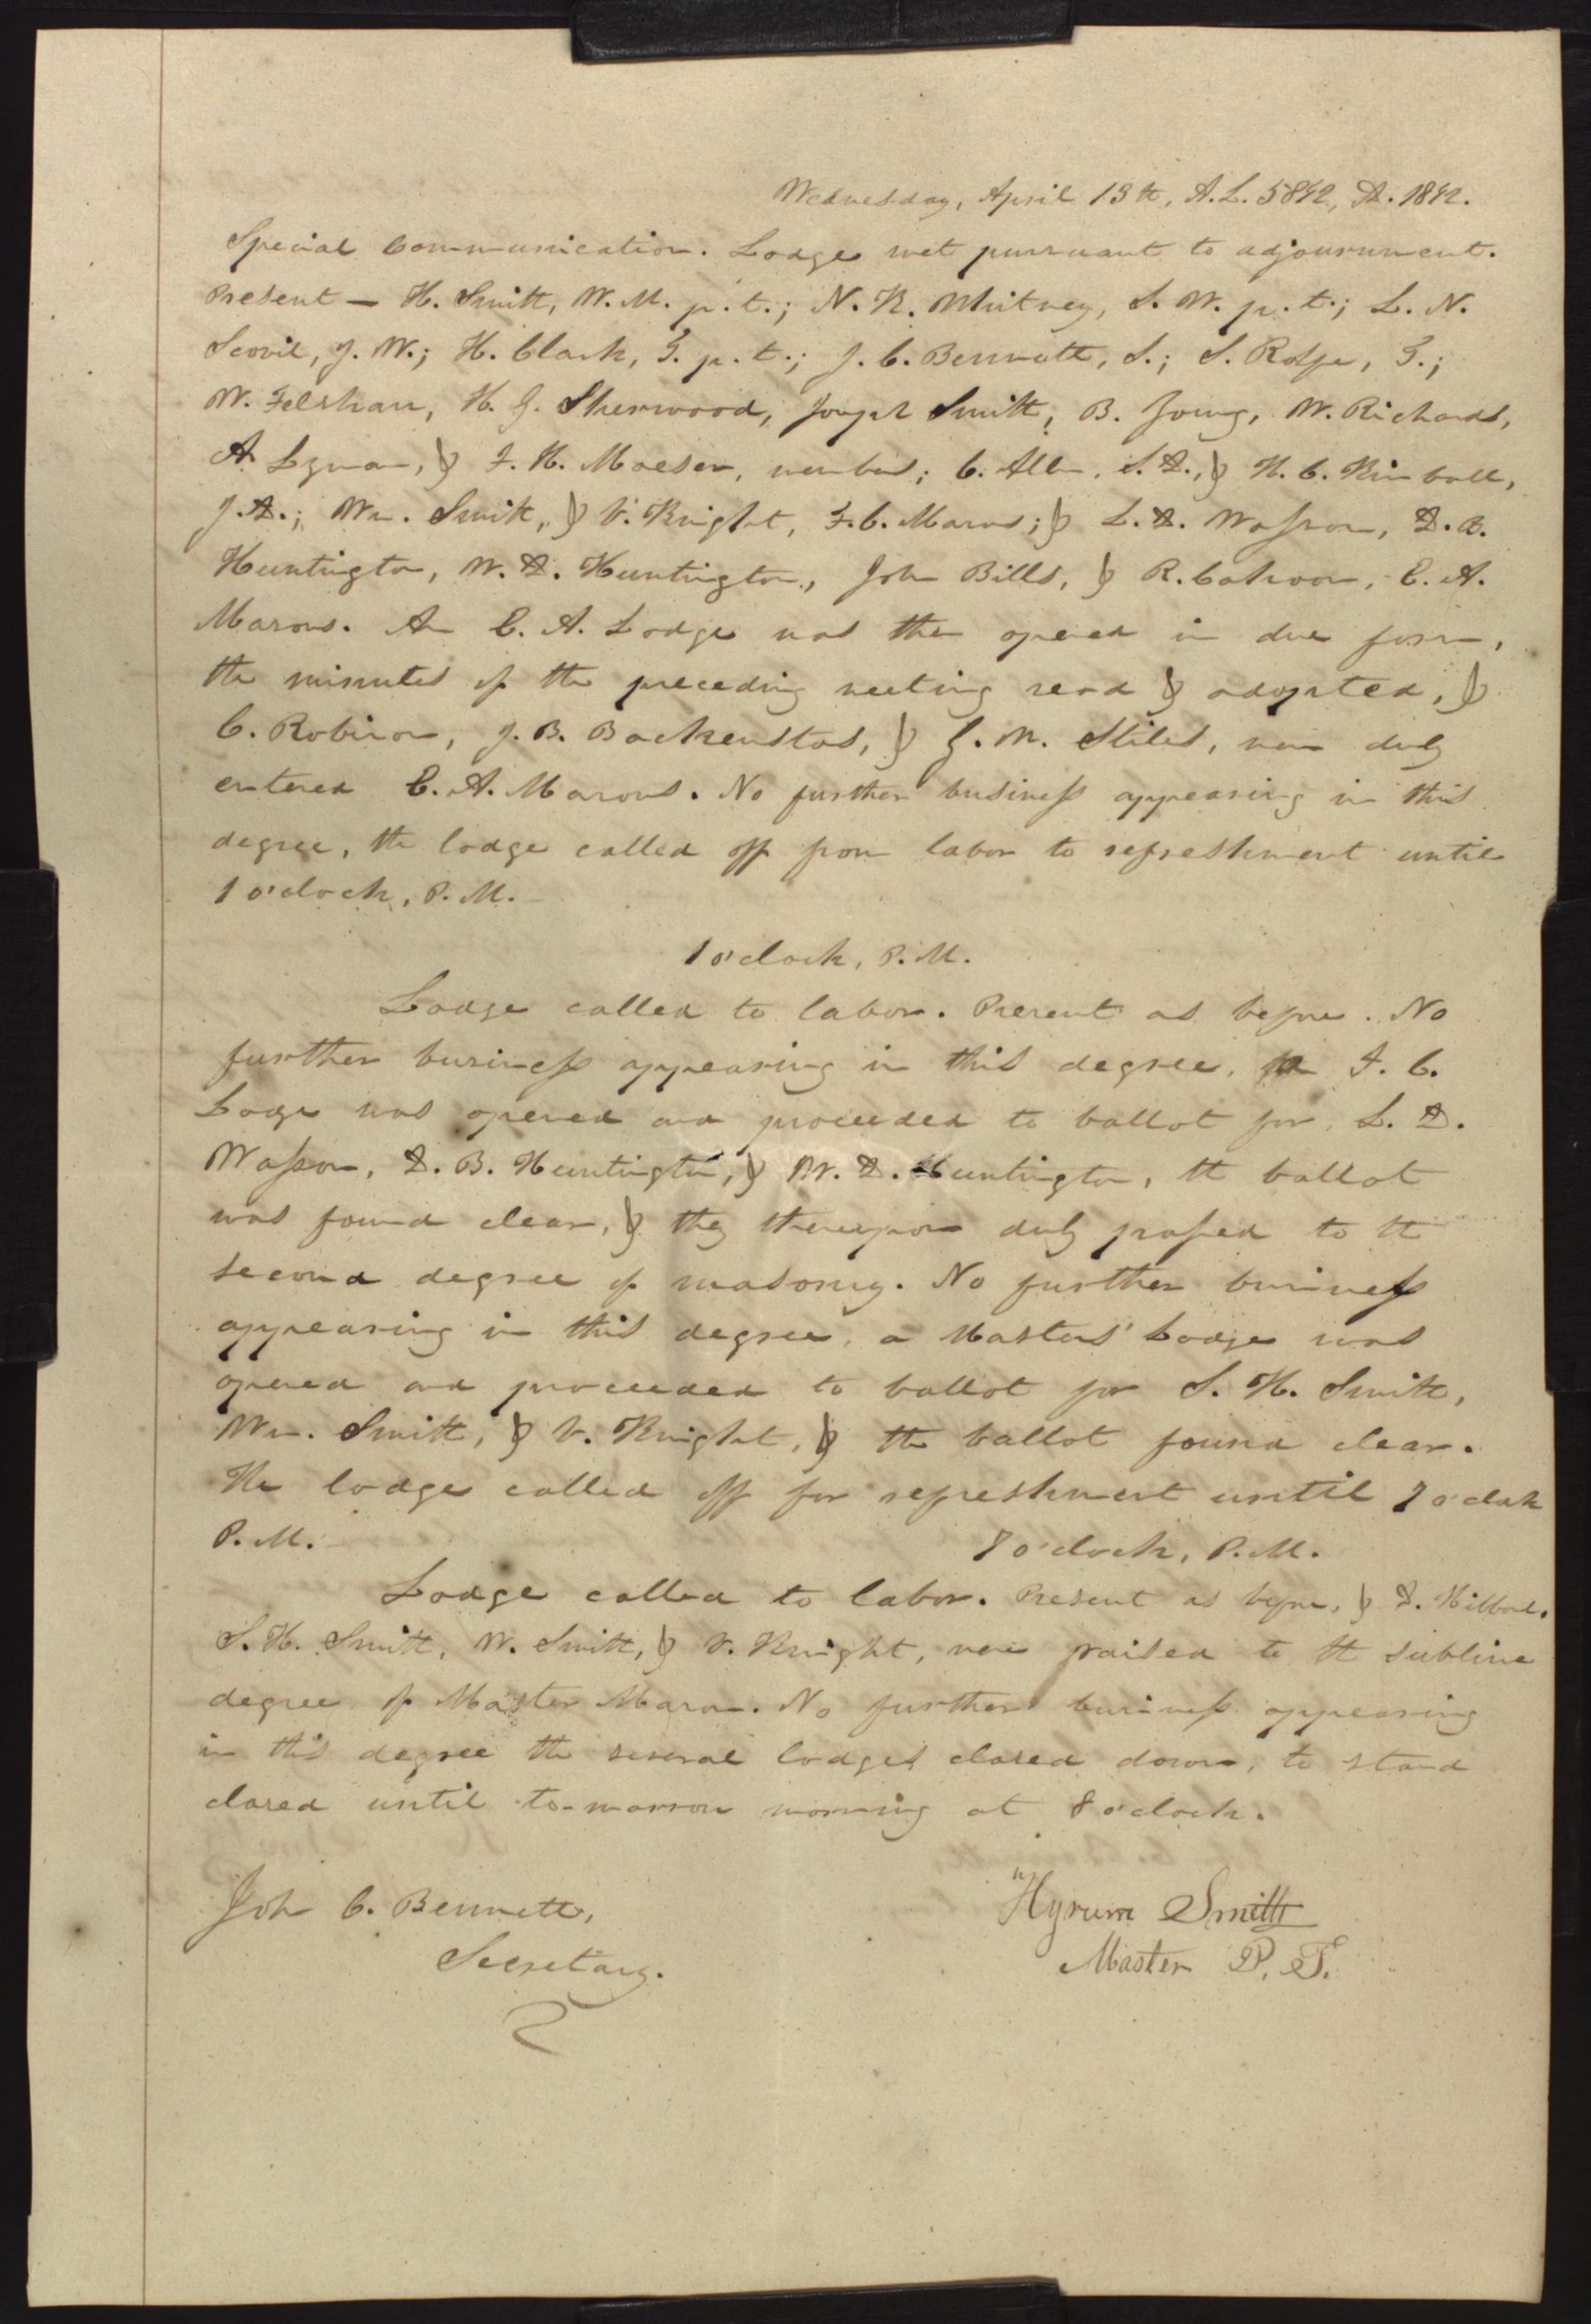 Wednesday, April 13th, A.L. 5842, A.D. 1842.
Special Communication. Lodge met pursuant to adjournment.
Present — H. Smith, W. M. p. t.; N. K. Whitney, S. W. p. t.; L. N.
Scovil, J. W.; H. Clark, T. p. t.; J. C. Bennett, S.; S. Rolfe, T.;
W. Felshaw, H. G. Sherwood, Joseph Smith, B. Young, W. Richards,
A. Lyman, & F. H. Moeser, members; C. Allen, S. D., & H. C. Kimball,
J. D.; Wm. Smith, & V. Knight, F. C. Masons; & L. D. Wasson, D. B.
Huntington, W. D. Huntington, John Bills, & R. Cahoon, E. A.
Masons. An E. A. Lodge was then opened in due form,
the minutes of the preceding meeting read & adopted, &
C. Robison, J. B. Backenstos, & G. M. Stiles, were duly
entered E. A. Masons. No further business appearing in this
degree, the lodge called off from labor to refreshment until
1 o'clock, P. M.
1 o'clock, P. M.
Lodge called to labor. Present as before. No
further business appearing in this degree, a F. C.
Loge was opened and proceeded to ballot for L. D.
Wasson, D. B. Huntington, & W. D. Huntington, the ballot
was found clear, & they thereupon duly passed to the
second degree of masonry. No further business
appearing in this degree, a Masters' Lodge was
opened and proceeded to ballot for S. H. Smith,
Wm. Smith, & V. Knight, & the ballot found clear.
The lodge called off for refreshment until 7 o'clock
P. M.
7 o'clock, P. M.
Lodge called to labor. Present as before, & D. Hibbard.
S. H. Smith, W. Smith, & V. Knight, were raised to the sublime
degree of Master Mason. No further business appearing
in this degree the several lodges closed down, to stand
closed until to-morrow morning at 8 o'clock.
John C. Bennett,
Secretary.
Hyrum Smith
Master P. T.